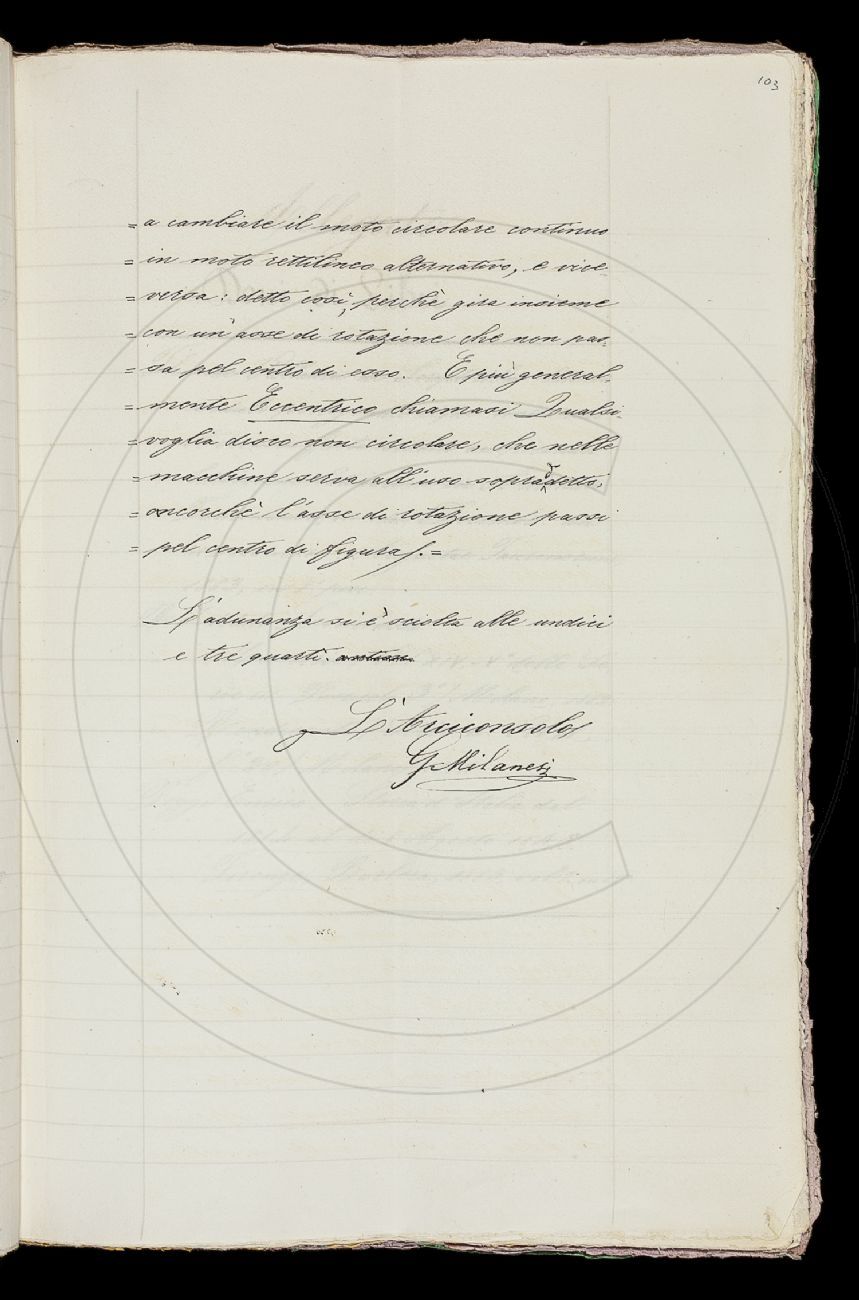 103
= a cambiare il moto circolare continuo
= in moto rettilineo alternativo, e vice-
= versa: detto così, perchè gira insieme
= con un'asse di rotazione che non pas-
= sa pel centro di esso. E più general-
= mente Eccentrico chiamasi Qualsi-
= voglia disco non circolare, che nelle
= macchine serva all'uso sopraddetto,
= ancorchè l'asse di rotazione passi
= pel centro di figura). =
L'adunanza si è sciolta alle undici
e tre quarti.
L'Arciconsolo
G Milanesi